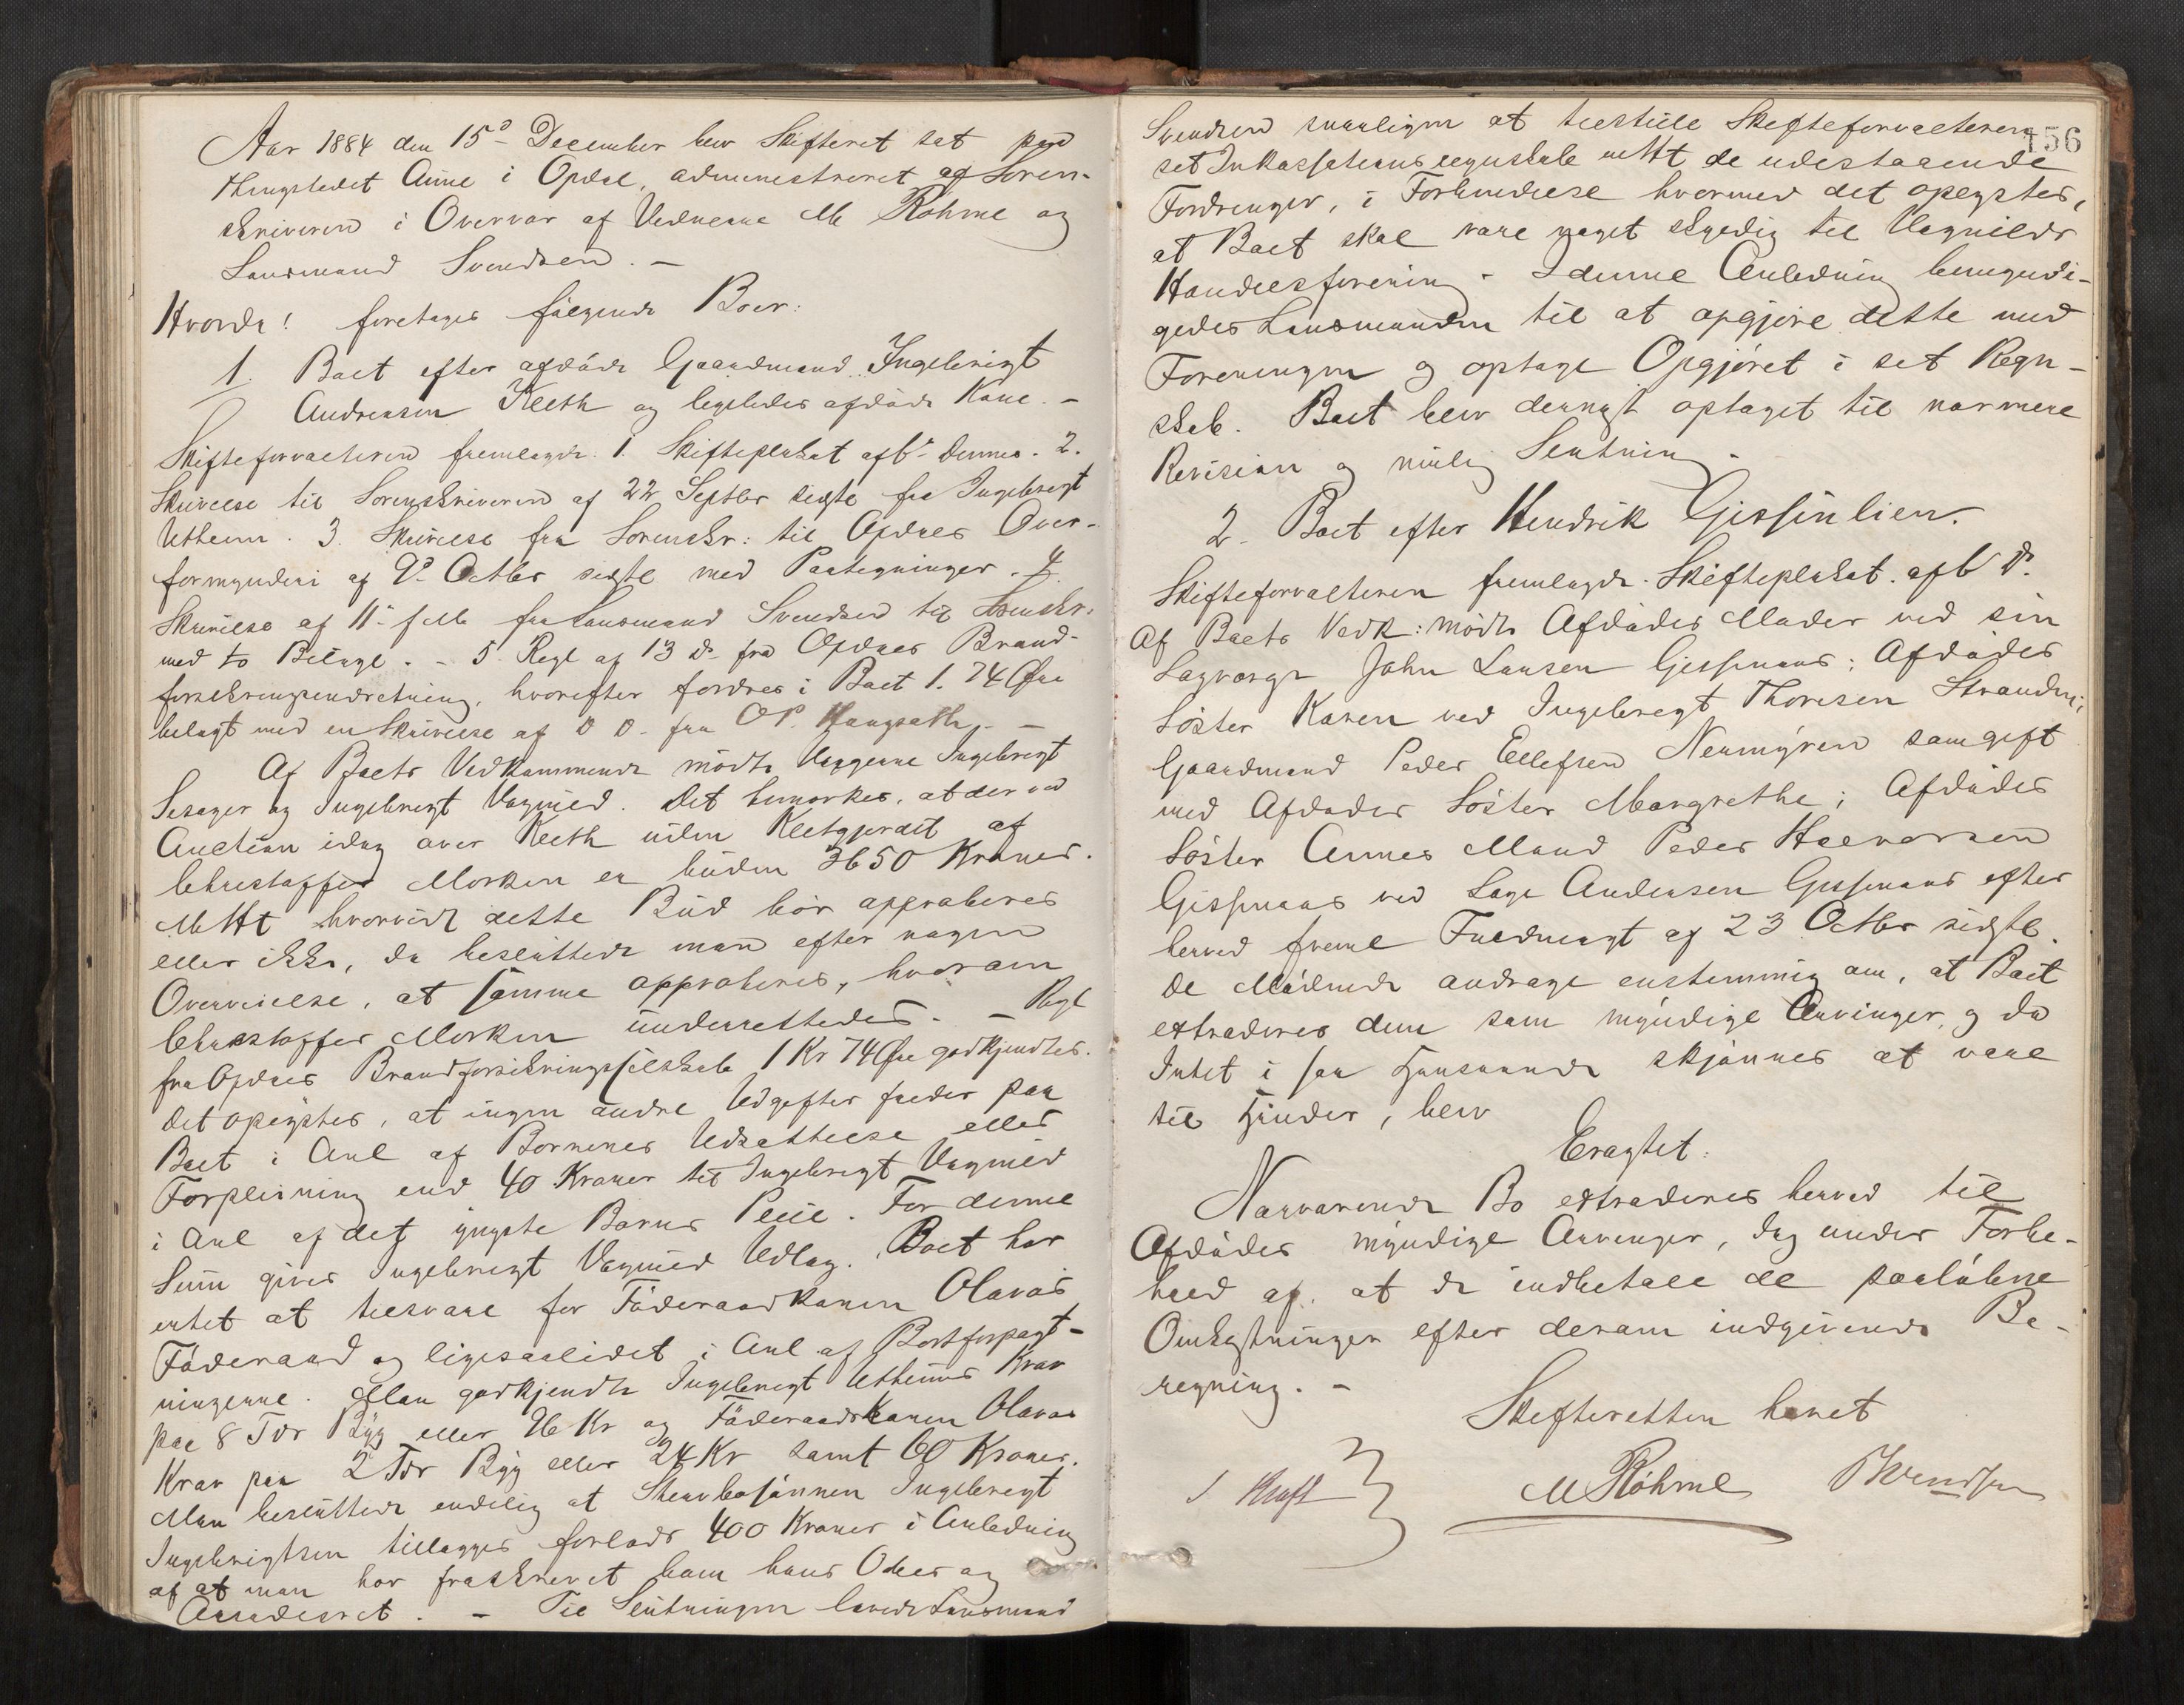 Aar 1884 den 15d- December blev Skifteret sat paa
Thingstedet Aune i Opdal, administreret af Soren-
skriveren i Overvær af Vidnerne M Røhme og
Lensmand Svendsen. -
Hvorda! foretoges følgende Boer:
1. Boet efter afdøde Gaardmand Ingebrigt
Andreasen Kleth og ligeledes afdøde Kone. -
Skifteforvalteren fremlagde. 1. Skifteplakat afb. dennes. 2.
Skrivelse til Sorenskriveren af 22 Septbr sidste fra Ingebregt
Utheim. 3. Skrivelse fra Sorenskr: til Opdals Over-
formynderi af 9d- Octbr sidstl med Paategninger. 4.
Skrivelse af 11- f. M. fra Lensmand Svendsen til Sorenskr.
med to Bilage. - 5. Regl af 13 d- fra Opdals Brand-
forsikringsindretning, hvorefter fordres i Boet 1. 74 Øre
belagt med en Skrivelse af D D. fra O P. -
Af Boets Vedkommende mødte Værgerne Ingebregt
og Ingebregt Vognild. Det bemærkes, at der ved
Auction idag over Kleth uden Kletgjerdet af
Christoffer Morken er buden 3650 Kroner.
Mht hvorvidt dette Bud bør approberes
eller ikke, da besluttede man efter nogen
Overveielse, at samme approberes, hvorom
Christoffer Morken underrettedes. - Regl
fra Opdals Brandforsikringsselskab 1 Kr 74 Øre godkjendtes.
Det oplystes, at ingen andre Udgifter falder paa
Boet i Anl af Børnenes Udsættelse eller
Forpleining end 40 Kroner til Ingebregt Vognild
i Anl af det yngste Barns Pleie. For denne
Sum gives Ingebregt Vognild Udlæg. Boet har
intet at tilsvare for Føderaadkonen Olavas
Føderaad og ligesaalidet i Anl af Bortforpagt-
ningerne. Man godkjendte Ingebregt Utheims Krav
paa 8 Tdr Byg eller 96 Kr og Føderaadskonen Olavas
Krav paa 2 Tdr Byg eller 24 Kr samt 60 Kroner.
Man besluttede endelig at Stervbosønnen Ingebregt
Ingebrigtsen tillægges forlods 400 Kroner i Anledning
af at man har fraskrevet ham hans Odels og
Aasædesret. - Til Slutningen lovede Lensmand
156
Svendsen snarligen at tilstille Skifteforvalteren
sit Inkassationsregnskab mHt de udestaaende
Fordringer, i Forbindelse hvormed det oplystes,
at Boet skal være noget skyldig til Vognilds
Handelsforening - I denne Anledning bemyndi-
gedes Lensmanden til at opgjøre dette med
Foreningen og optage Opgjøret i sit Regn-
skab. Boet blev dernæst optaget til nærmere
Revision og mulig Slutning.
2. Boet efter Hendrik Gissinlien.
Skifteforvalteren fremlagde. Skifteplakat. afb D.
Af Boets Vedk: mødte Afdødes Moder ved sin
Lagværge John Larsen Gissinaas; Afdødes
Søster Karen ved Ingebregt Thoresen Stranden;
Gaardmand Peder Ellefsen Nermyren samgift
med Afdødes Søster Margrethe; Afdødes
Søster Annes Mand Peder Halvorsen
Gissinaas ved Lars Andersen Gissinaas efter
herved freml Fuldmagt af 23 Octbr sidstl.
De Mødende androge enstemmig om, at Boet
extraderes dem som myndige Arvinger, og da
Intet i saa Henseende skjønnes at være
til Hinder, blev
Eragtet:
Nærværende Bo extraderes herved til
Afdødes myndige Arvinger, dog under Forbe-
hold af, at de indbetale de paaløbne
Omkostninger efter derom indgivende Be-
regning. -
Skifteretten hævet
M Røhme Svendsen